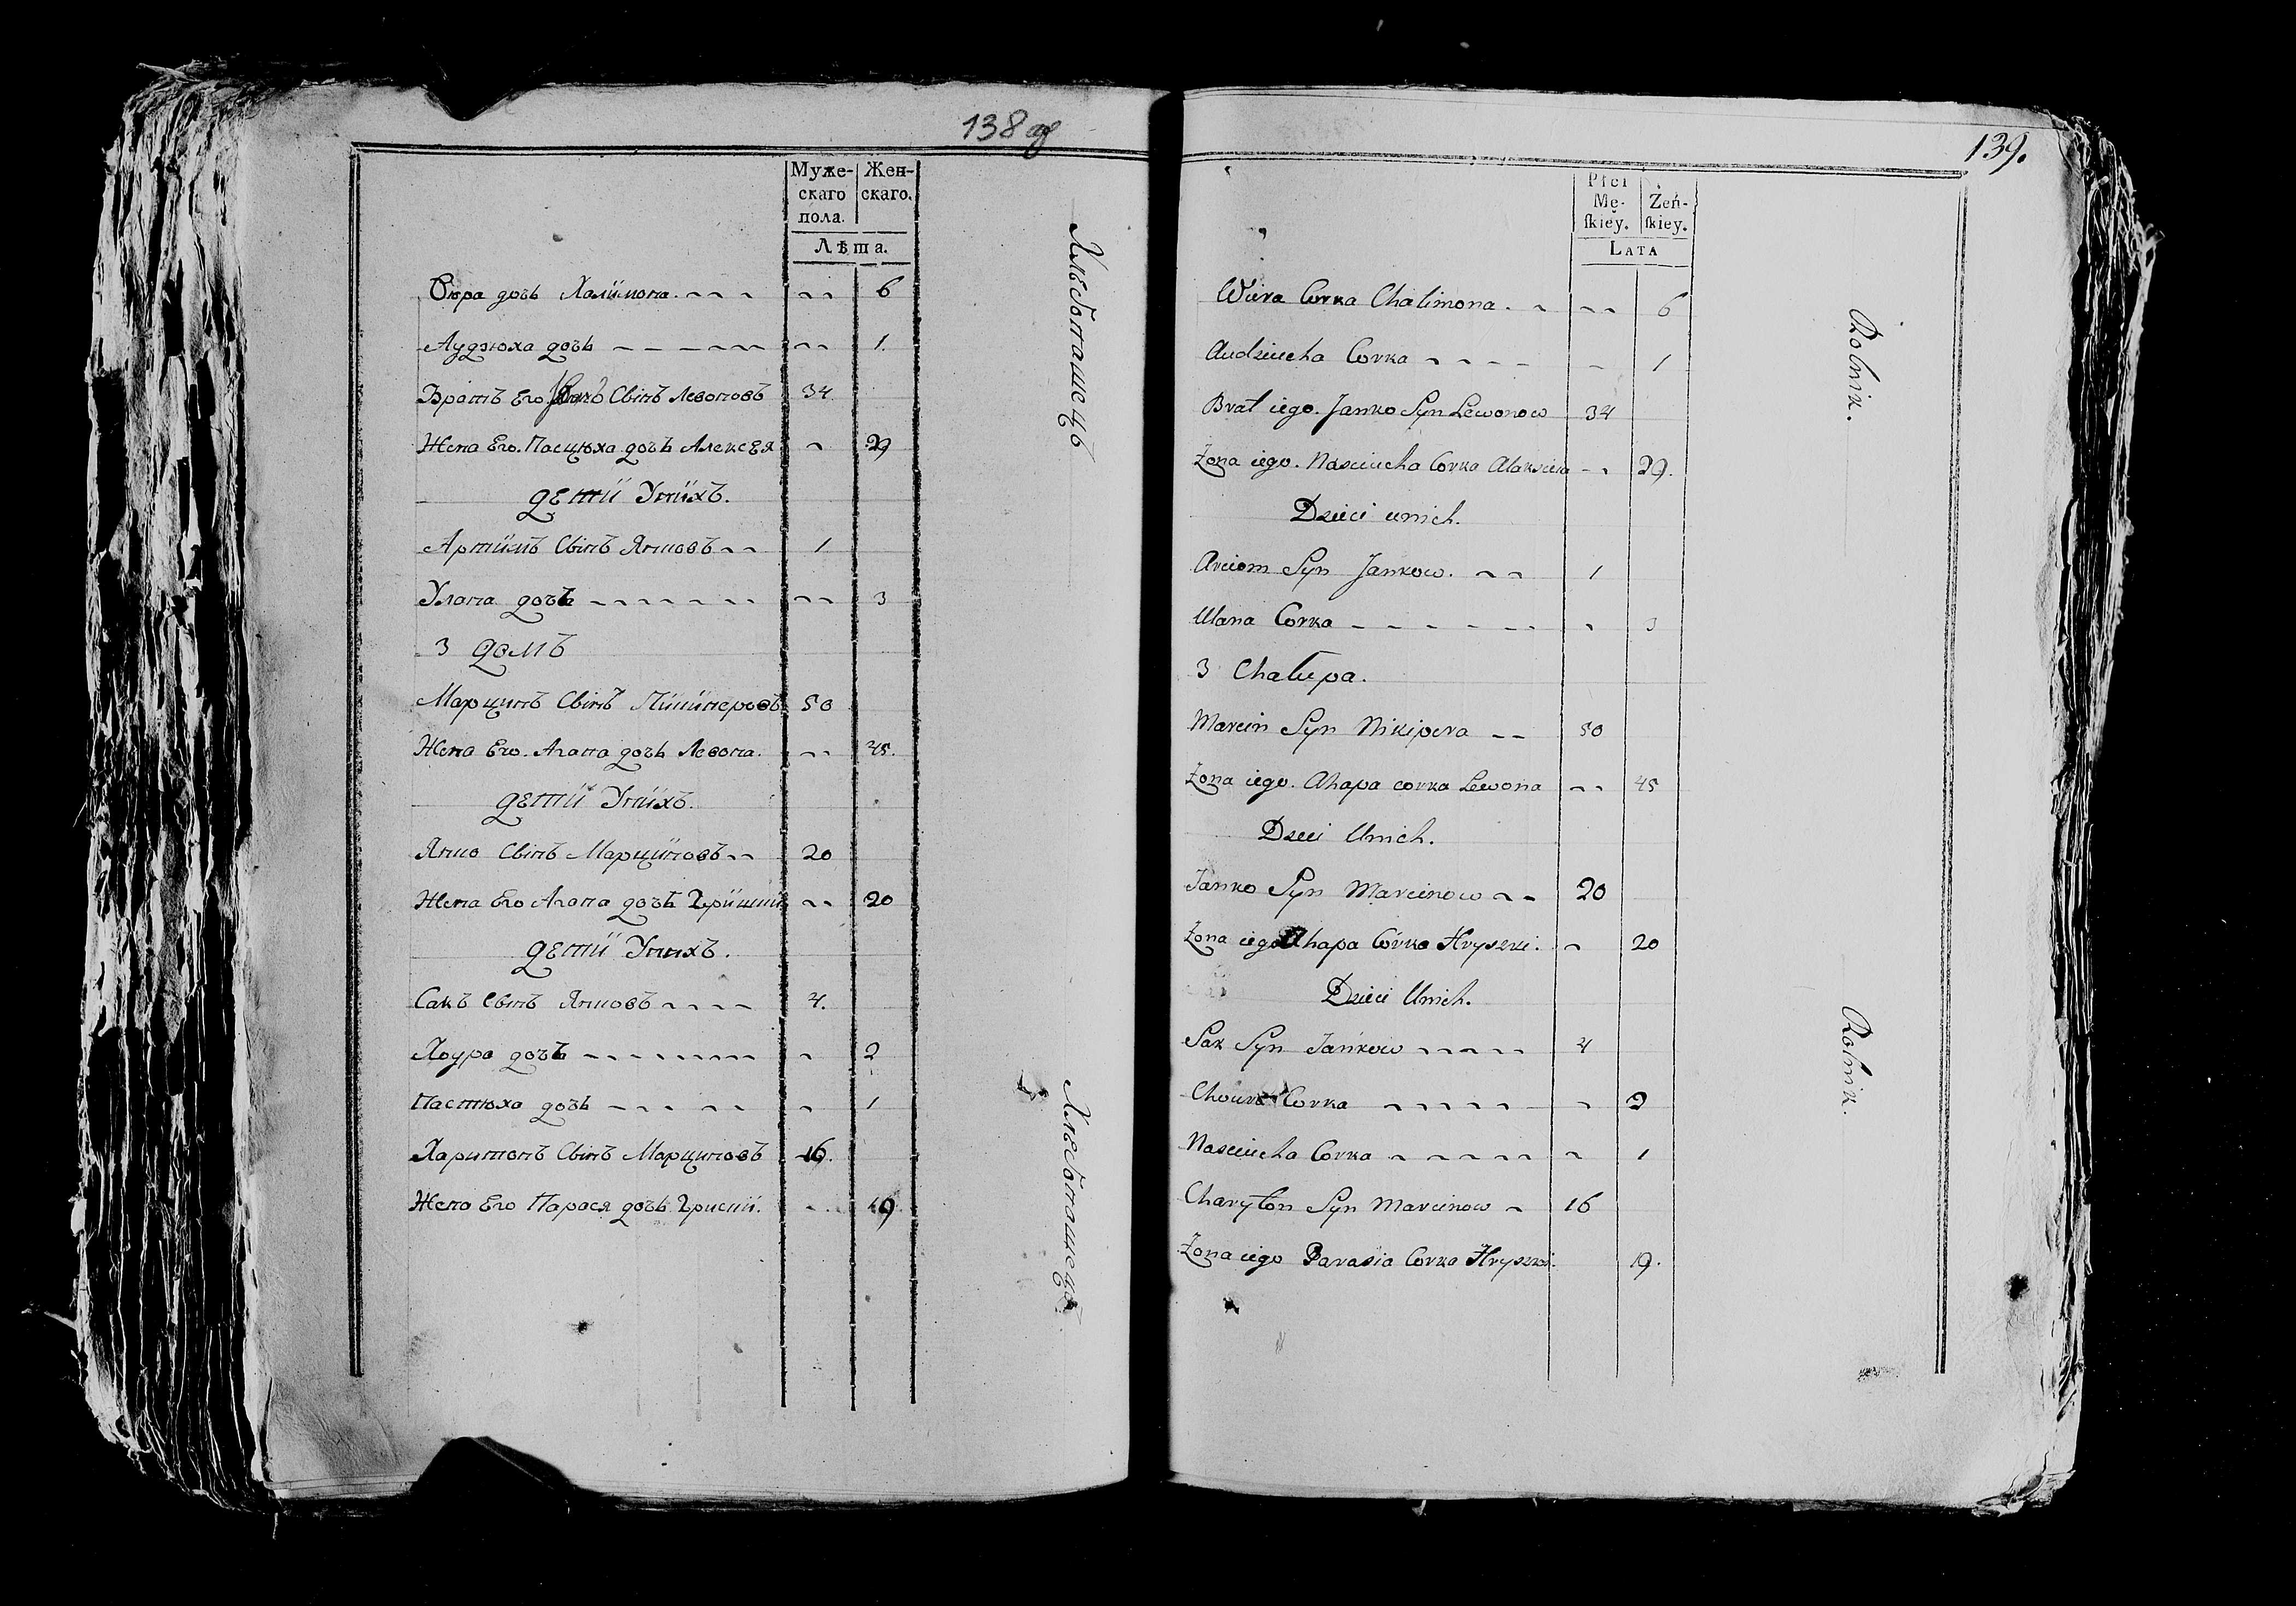 138 об
Муже-
скаго
пола.
Жен-
скаго.
Лѣта.
Вѣра дочь Халимона. 6
Аудзюха дочь 1.
Братъ Его Сынъ Левоновъ 34
Жена Его. Насцюха дочь Алексѣя 29
дети Унихъ.
Артимъ Сынъ Янковъ 1
Улана дочь 3
3 домъ
Марцинъ Сынъ Никиперовъ 50
Жена Его. Агапа дочь Левона. 45.
дети Унихъ.
Янко Сынъ Марциновъ 20
Жена Его Агапа дочь Гришки 20
дети Унихъ.
Сакъ Сынъ Янковъ 4.
Хоура дочь 2
Настюха дочь 1
Харитонъ Сынъ Марциновъ 16.
Жена Его Парася дочь Гриски. 19
Хлебопашецъ
Хлебопашецъ.
139.
Płci
Mę-
ſkiey.
Żeń-
ſkiey.
LATA
Wiera Corka Chalimona. 6
Audziucha Corka 1
Brat iego. Janko Syn Lewonow 34
Żona iego. Nasciucha Corka Alaksieia 29.
Dzieci unich.
Arciom Syn Jankow. 1
Ulana Corka 3
3 Chałupa.
Marcin Syn Nikipera 50
Żona iego. Ahapa corka Lewona 45
Dzieci Unich.
Janko Syn Marcinow 20
Żona iego Ahapa Córka Hryszki. 20
Dzieci Unich.
Sak Syn Jańkow 4
Choura Corka 2
Nasciucha Corka 1
Charyton Syn Marcinow 16
Żona iego Parasia Corka Hryszki. 19.
Rolnik.
Rolnik.